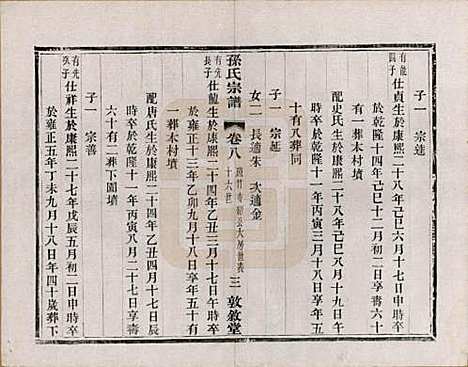 有能四子 仕貞生於康熙二十八年己巳六月十七日申時卒
於乾隆十四年己巳十一月初二日享壽六十
有一葬本村墳
配史氏生於康熙二十八年己巳八月十九日午
時卒於乾隆十一年丙寅三月十一日享年五
十有八葬同
子一 宗延
女二 長適朱 次適金
孫氏宗譜 卷八 十六世 三 敦敘堂
有先長子 仕龍生於康熙二十四年乙丑三月十七日戌
時卒於雍正十三年乙卯九月十八日享年五十有
一葬木村墳
配唐氏生於康熙二十四年乙丑四月二十七日戌
時卒於乾隆十一年丙寅八月二十七日享壽
六十有二葬下圍墳
子一 宗善
有先次子 仕祥生於康熙二十七年戊辰五月初二日辰時卒
於雍正五年丁未九月十八日年四十歲葬下